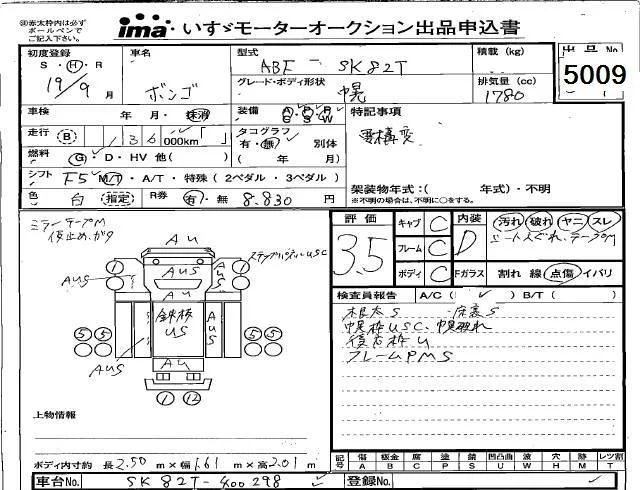 ※赤太枠内は必ず
ボールペンで
ご記入下さい。
ima いすゞモーターオークション出品申込書
初度登録 車名 型式 積載 (kg) 出品No
S・H・R ABF-SK82T 5009
19/9月 ボンゴ グレード・ボディ形状 排気量 (cc)
幌 1780
車検 年 月・抹消 装備 A P P S W 特記事項
走行 B 36 000km「 」 タコグラフ 有・無 別体 要構変
燃料 G・D・HV 他( ) ( 年 月)
シフト F5 M/T・A/T・特殊(2ペダル・3ペダル) 架装物年式:( 年式)・不明
色 白 (指定) R券 有・無 8.830 円 ※不明の場合は、不明に○をする。
ミラーテープM
AU
評価 3.5 キャブ C 内装 D 汚れ 破れ ヤニ スレ
フレーム C
ボディ C Fガラス 割れ 線 点傷 イバリ
1 AUS 1
AUS
AU
検査員報告 A/C( ✓ ) B/T( )
根太S 床裏S
US AUS
フレームPMS
5 5 5 5
AUS AU
1 12
上物情報
ボディ内寸約 長2.50 m×幅1.61 m×高2.01 m
記号 傷A 板金B 腐C 塗P 錆S 凹凸曲U 波W 穴H 跡M 汚T レンツ割
車台No. SK82T-400298 登録No.